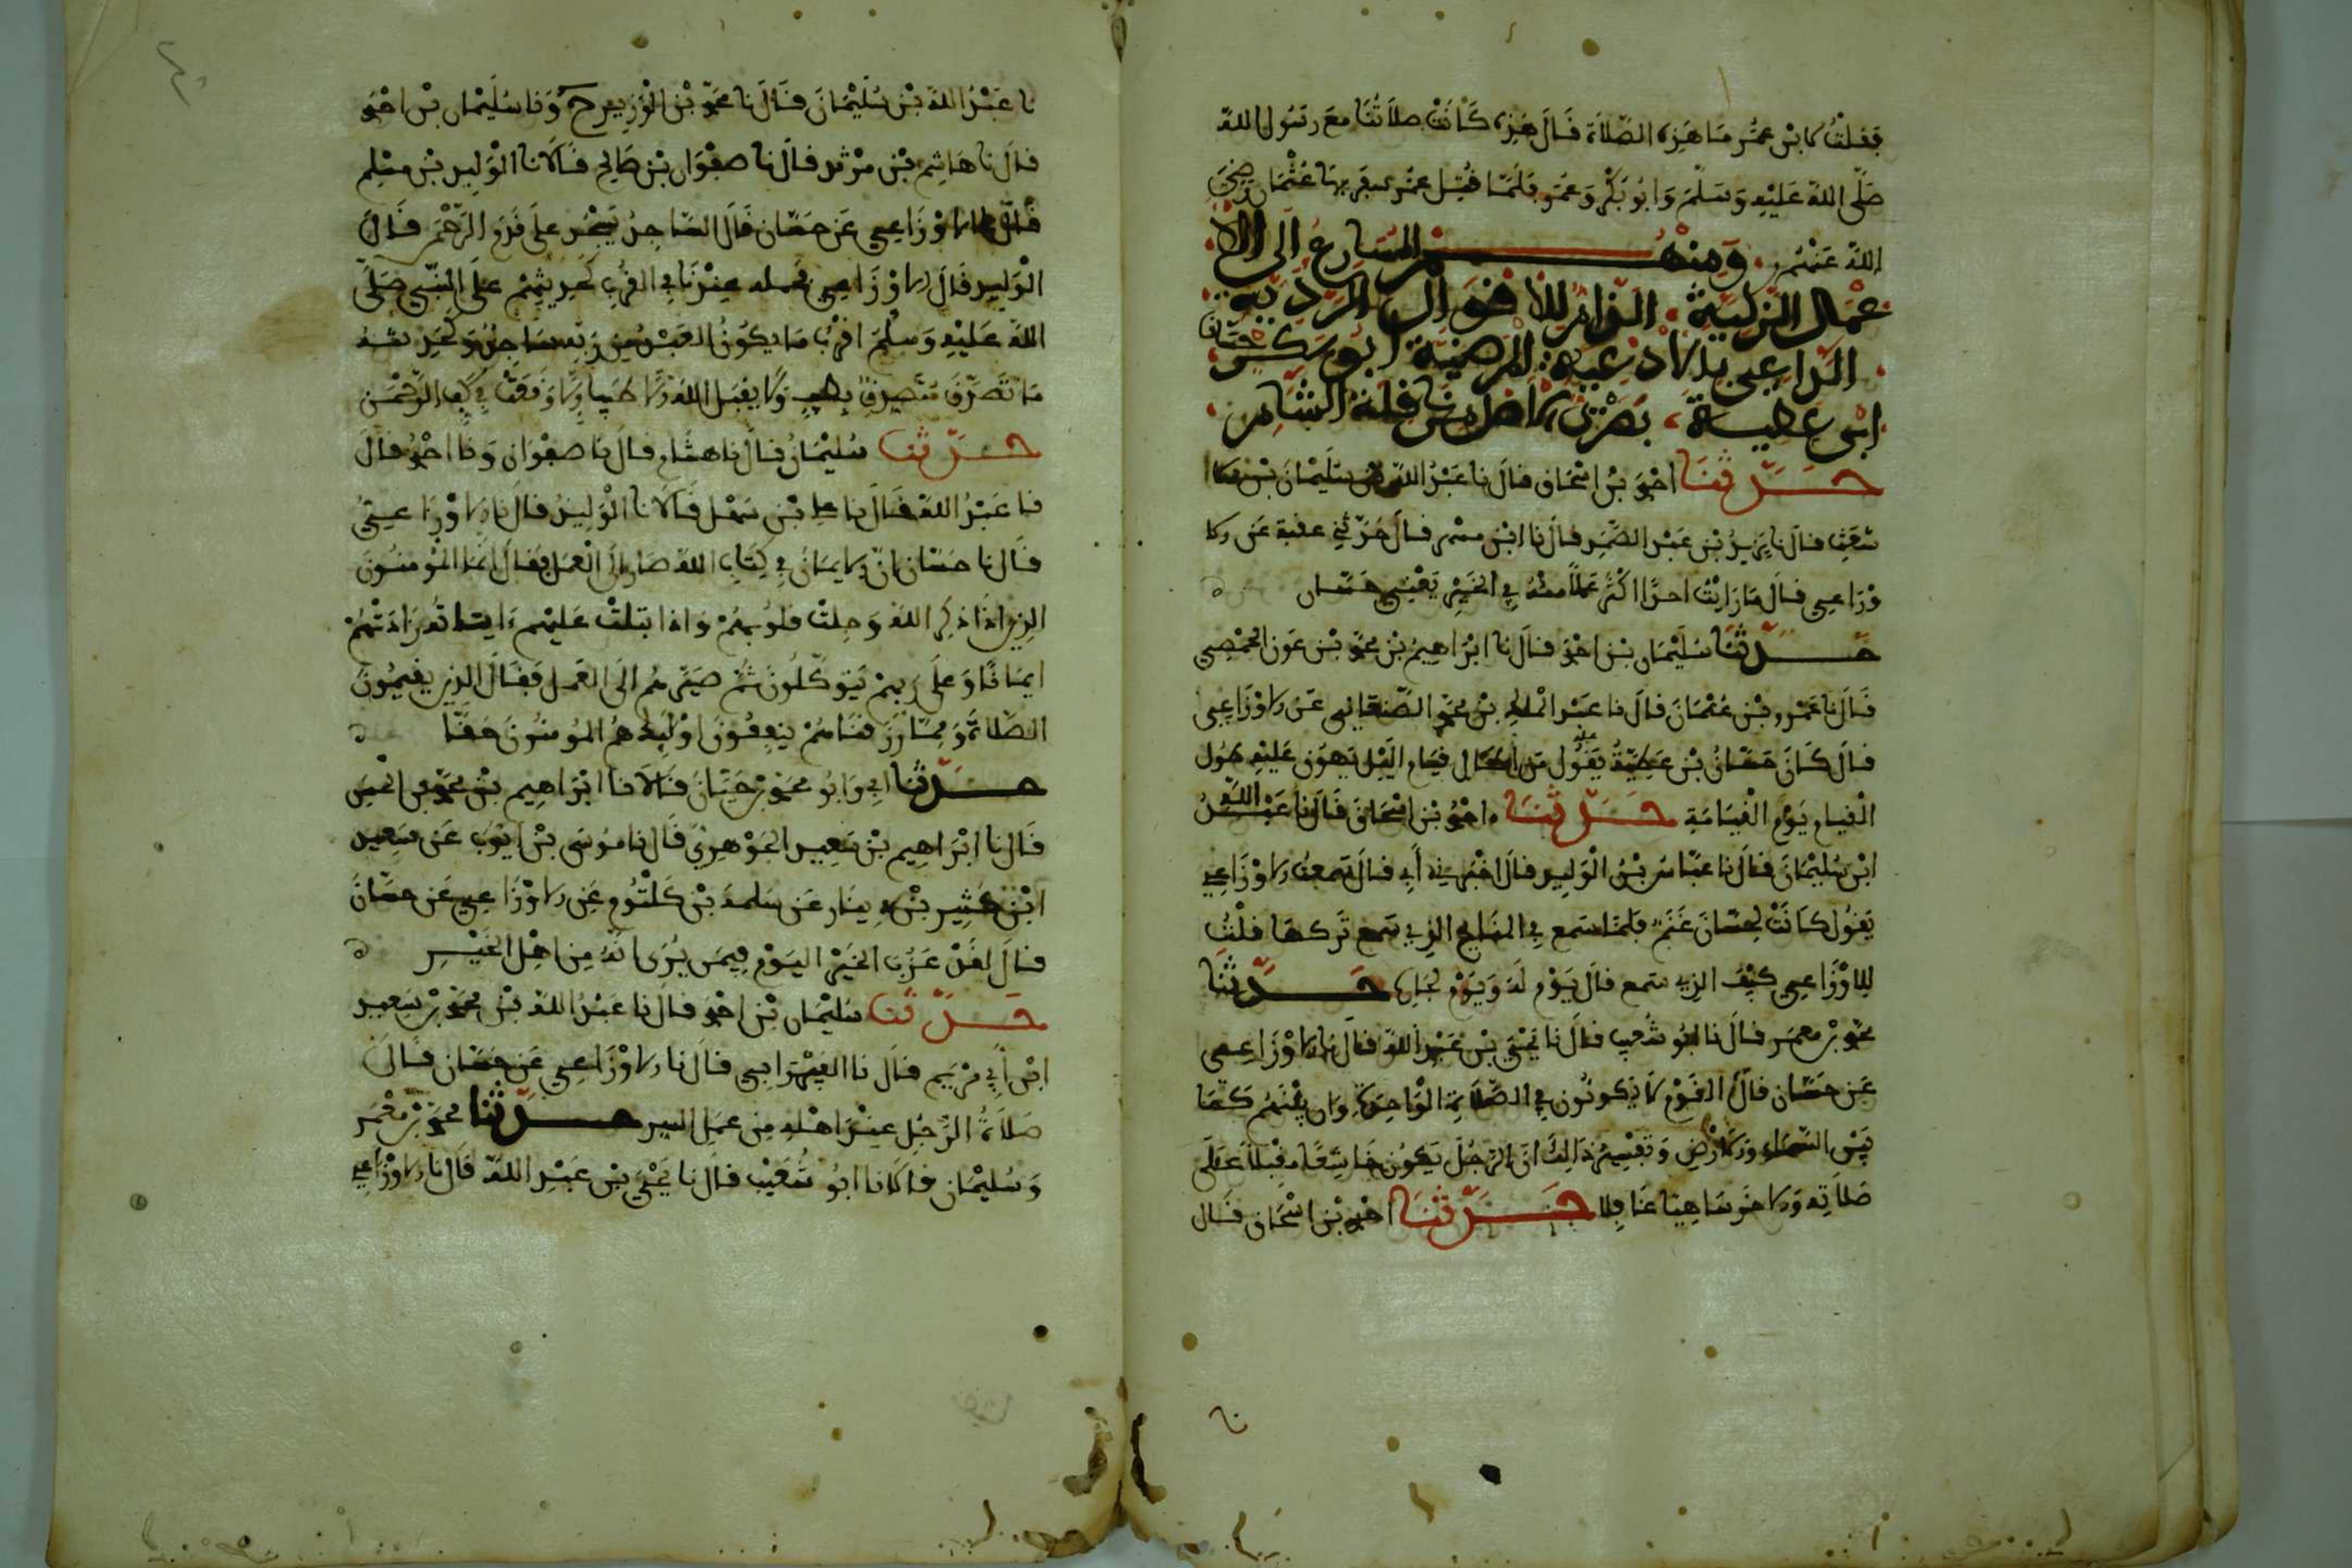 فقلت لابن عمر ما هذه الصلاة قال هذه كانت صلاتنا مع رسول الله
صلى الله عليه وسلم وابو بكر وعمر فلما قتل عمر اسفر بها عثمان رضي
الله عنهم ومنهم المسارع الى الا
عمال الزكية الرام للاقوال الردية
الراعي بالادعية المرضية ابو بكر حسان
ابن عطية بصرى الاصل من ناقلة الشام
حدثنا احمد بن اسحاق قال نا عبد الله بن سليمان بن الا
شعث قال نا يزيد بن عبد الصمد قال نا ابن مسهر قال حدثني عقبة عن الا
وزاعي قال ما رايت احدا اكثر عملا منه في الخير يعني حسان
حدثنا سليمان بن احمد قال نا ابراهيم بن محمد بن عون الحمصي
قال نا عمرو بن عثمان قال نا عبد الملك بن محمد الصنعاني عن الاوزاعي
قال كان حسان بن عطية يقول من اطال قيام الليل يهون عليه طول
القيام يوم القيامة حدثنا احمد بن اسحاق قال نا عبد الله
ابن سليمان قال نا عباس بن الوليد قال اخبرني أبي قال سمعت الاوزاعي
يقول كانت لحسان غنم فلما سمع في المنائح الذي سمع تركها قلت
للاوزاعي كيف الذي سمع قال يوم له ويوم لجاره حدثنا
محمد بن معمر قال نا ابو شعيب قال نا يحيى بن عبد الله قال نا الاوزاعي
عن حسان قال ان القوم لا يكونون في الصلاة الواحدة وان بينهم كما
بين السماء والارض وتفسير ذالك ان الرجل يكون خاشعا مقبلا على
صلاته والاخر ساهيا غافلا حدثنا احمد بن اسحاق قال
نا
نا عبد الله بن سليمان قال نا محمد بن الوزير ح ونا سليمان بن احمد
قال نا هاشم بن مرثد قال نا صفوان بن صالح قالا نا الوليد بن مسلم
قال نا الاوزاعي عن حسان قال الساجد يسجد على قدم الرحمن قال
الوليد قال الاوزاعي عندنا في القرب كحديثهم على النبي صلى
الله عليه وسلم اقرب ما يكون العبد من ربه ساجدا وكحديثه
ما تصدق متصدق بطيب ولا يقبل الله الا طيبا الا وقعت في كف الرحمن
حدثنا سليمان قال نا هشام قال نا صفوان ونا احمد قال
نا عبد الله قال نا علي بن سهل قالا نا الوليد قال نا الاوزاعي
قال نا حسان ان الايمان في كتاب الله صار الى العمل فقال انما المؤمنون
الذين اذا ذكر الله وجلت قلوبهم واذا تليت عليهم ءاياته زادتهم
ايمانا وعلى ربهم يتوكلون ثم صيرهم الى العمل فقال الذين يقيمون
الصلاة ومما رزقناهم ينفقون اولئك هم المومنون حقا
حدثنا ابي وابو محمد بن حيان قالا نا ابراهيم بن محمد بن الحسن
قال نا ابراهيم بن سعيد الجوهري قال نا موسى بن ايوب عن سعيد
ابن كثير بن دينار عن سلمة بن كلثوم عن الاوزاعي عن حسان
قال لقد عزب الخير اليوم فيمن يرى انه من اهل الخير
حدثنا سليمان بن احمد قال نا عبد الله بن محمد بن سعيد
ابن أبي مريم قال نا الفريابي قال نا الاوزاعي عن حسان قال
صلاة الرجل عند اهله من عمل السر حدثنا محمد بن معمر
وسليمان قالا نا ابو شعيب قال نا يحيى بن عبد الله قال نا الاوزاعي